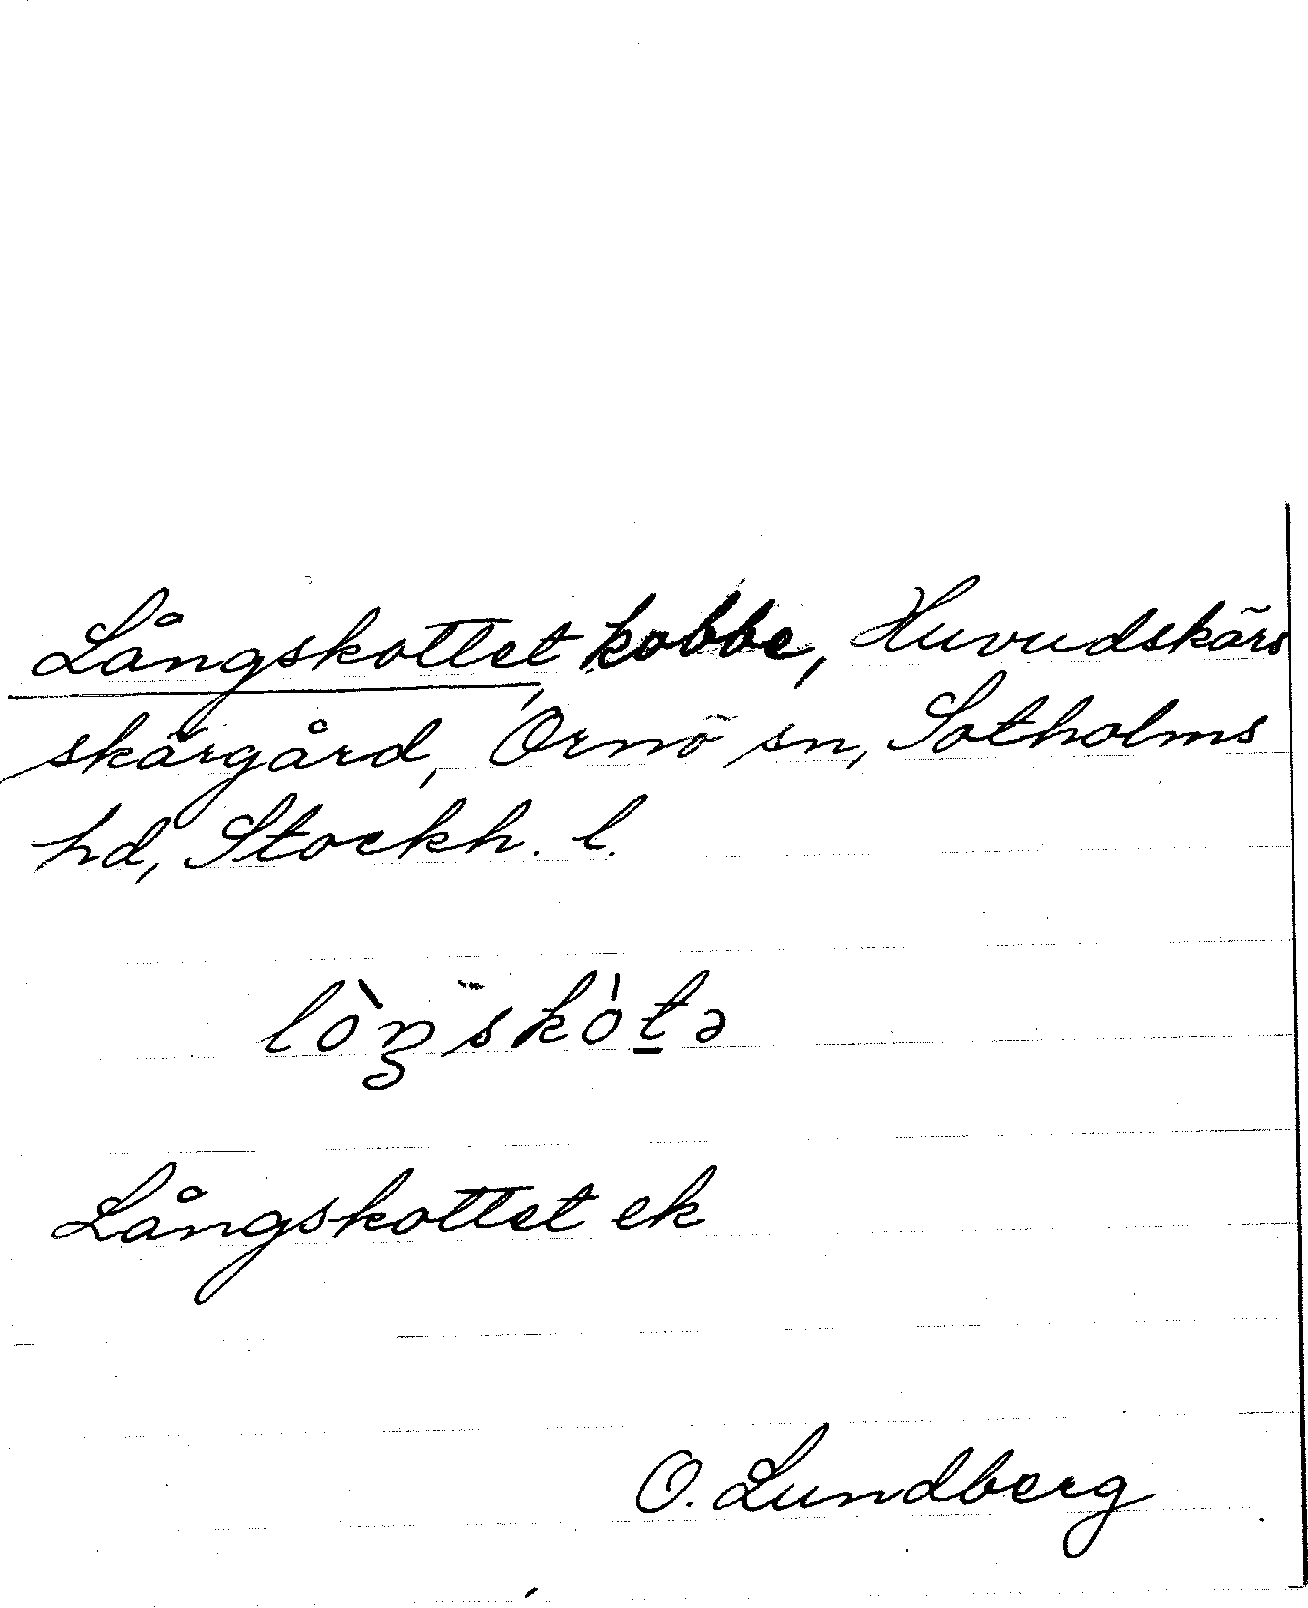 Långskottet, kobbe, Huvudskärs
skärgård, Ornö sn, Sotholms
hd, Stockh. l.
lòŋskót̲ə
Långskottet ek
O. Lundberg